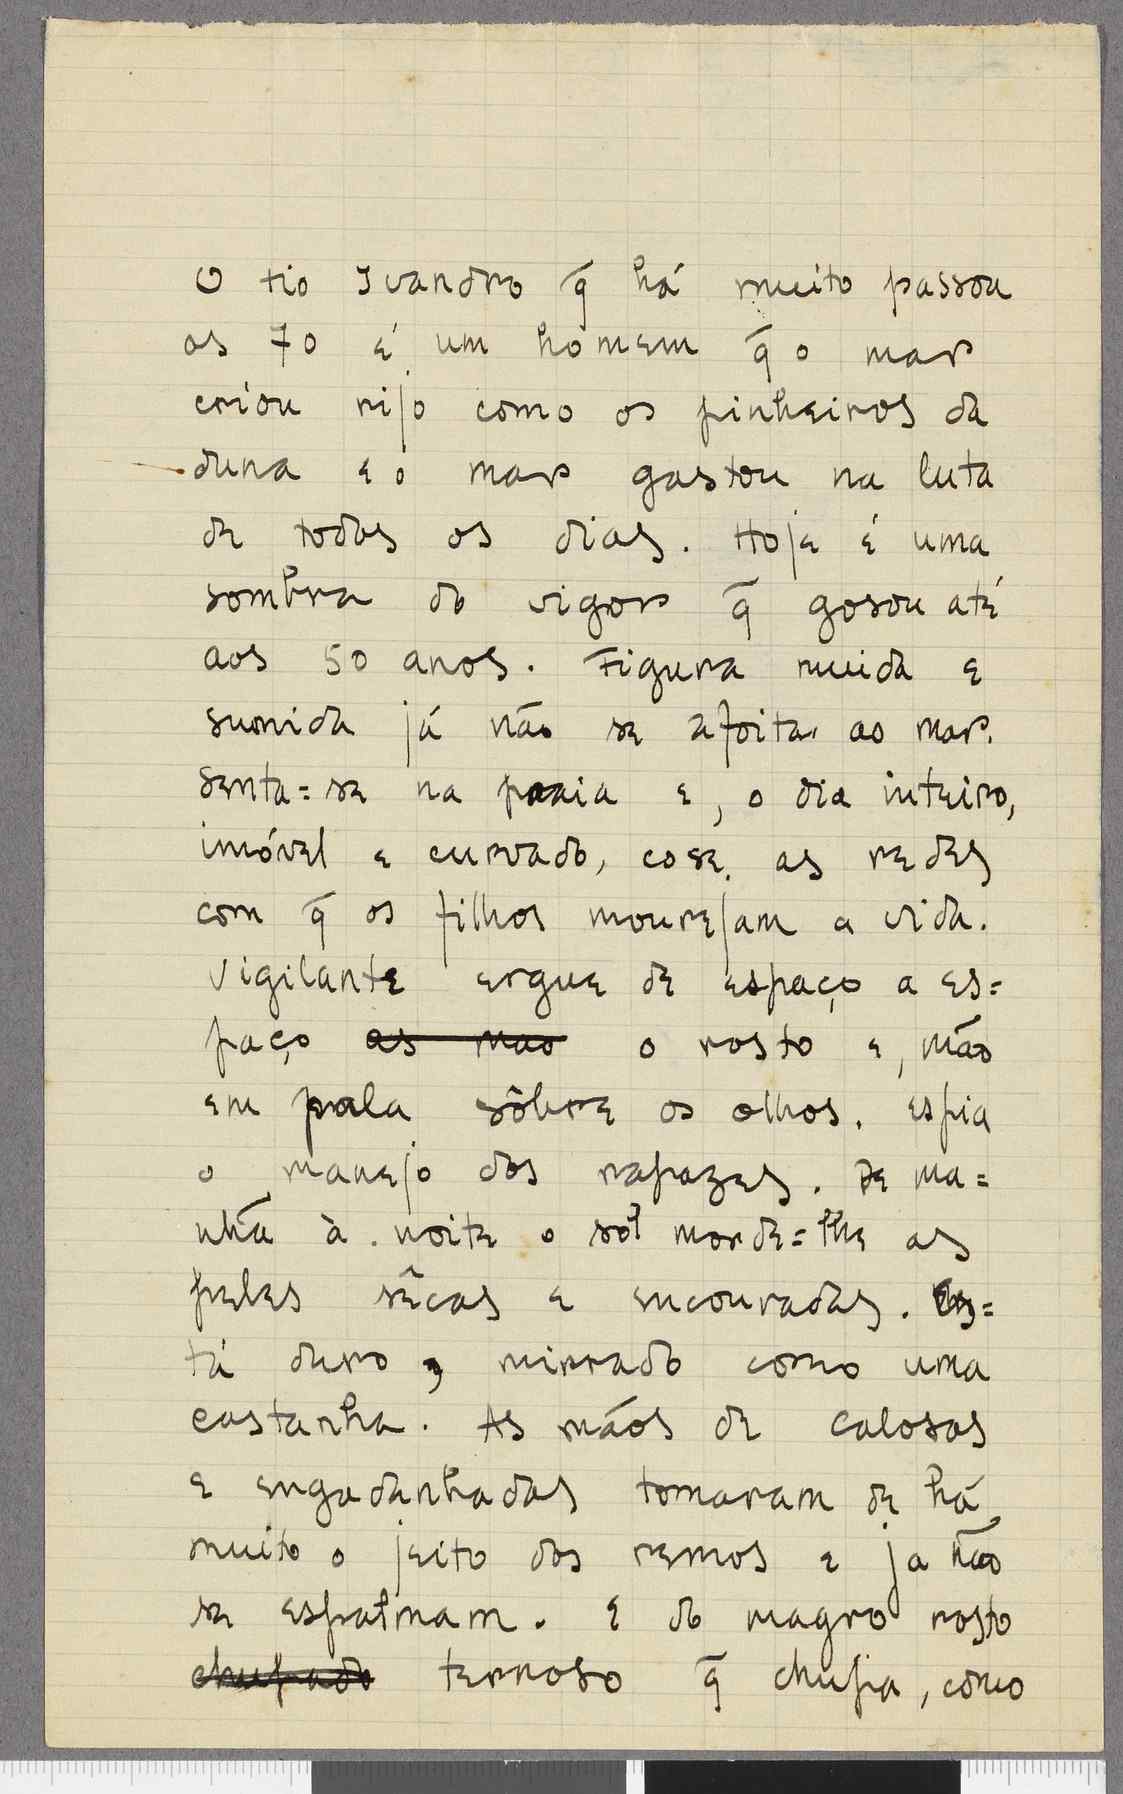 O tio Ivandro q̃ há muito passou
os 70 é um homem q̃ o mar
criou rijo como os pinheiros da
duna e o mar gastou na luta
de todos os dias. Hoje é uma
sombra do vigor q̃ gosou até
aos 50 anos. Figura ruida e
sumida já não se afoita ao mar.
Senta=se na praia e, o dia inteiro,
imóvel e curvado, cose as redes
com q̃ os filhos mourejam a vida.
Vigilante ergue de espaço a es=
paço as mao o rosto e, mão
em pala sôbre os olhos, espia
o manejo dos rapazes. De ma=
nhã à noite o sol morde=lhe as
peles sêcas e encouradas. Es=
tá duro, mirrado como uma
castanha. As mãos de calosas
e engadanhadas tomaram de há
muito o jeito dos remos e ja não
se espalmam. E do magro rosto
chupado terroso q̃ chupa, como